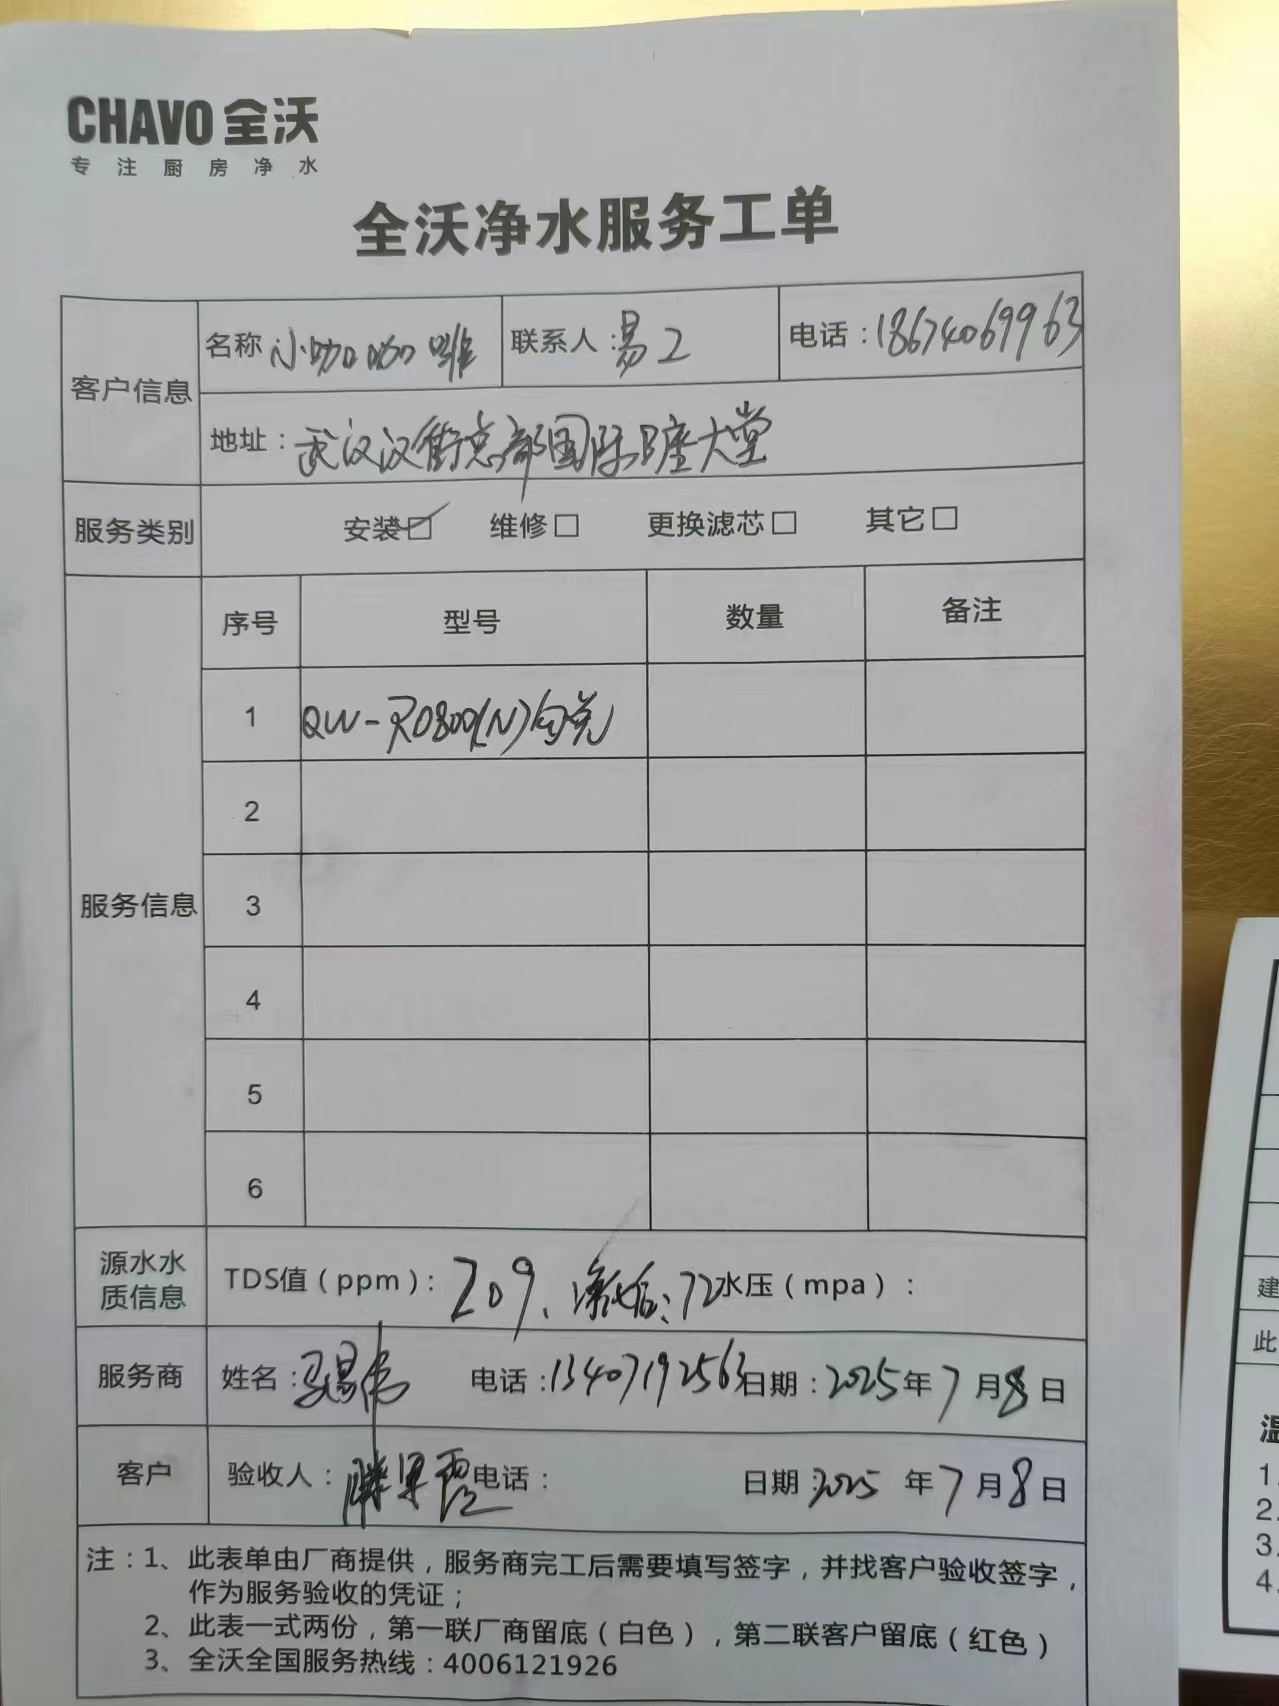 CHAVO 全沃
专注厨房净水
全沃净水服务工单
客户信息
名称 小咖咖啡 联系人:易工 电话:18674069963
地址:武汉汉街总部国际B座大堂
服务类别 安装☑ 维修□ 更换滤芯□ 其它□
服务信息
序号 型号 数量 备注
1 QW-RO800(N)
2
3
4
5
6
源水水质信息 TDS值(ppm): 209、净化后:72 水压(mpa):
服务商 姓名: 电话:13407192563 日期:2025年7月8日
客户 验收人: 电话: 日期:2025年7月8日
注:1、此表单由厂商提供,服务商完工后需要填写签字,并找客户验收签字,
作为服务验收的凭证;
2、此表一式两份,第一联厂商留底(白色),第二联客户留底(红色)
3、全沃全国服务热线:4006121926
建
此
温
1.
2.
3.
4.